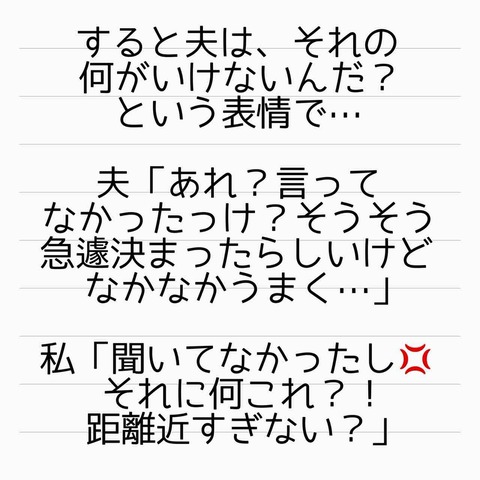 すると夫は、それの
何がいけないんだ？
という表情で…
夫「あれ？言って
なかったっけ？そうそう
急遽決まったらしいけど
なかなかうまく…」
私「聞いてなかったし💢
それに何これ？！
距離近すぎない？」